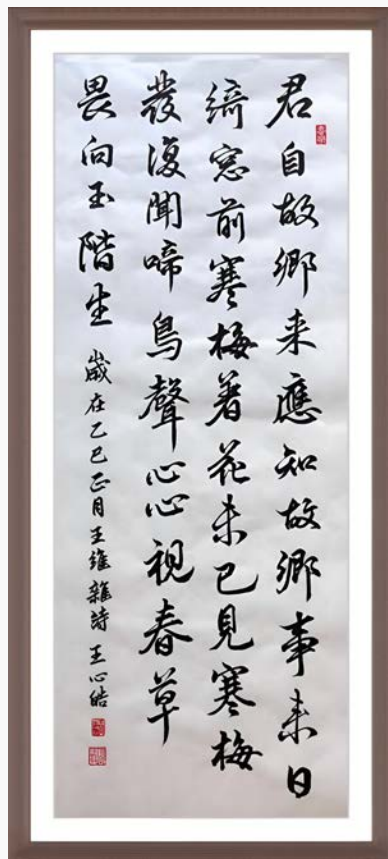 君自故鄉来應知故鄉事来日
綺窓前寒梅著花未已見寒梅
發復聞啼鳥聲心心視春草
畏向玉階生
歲在乙巳正月王維雜詩王心皓